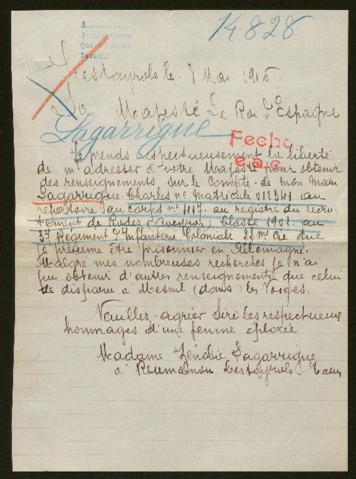 14828
Lestayrols le 8 Mai 1915
Sa Majesté Le Roi d'Espagne
Lagarrigue
Fecho
Je prends respectueusement la liberté
de m'adresser a votre Majesté pour obtenir
des renseignements sur le Compte de mon Mari
Lagarrigue Charles nº Matricule au
répertoire au corps nº 1117 au registre du recru
tement de Rodez (Aveyron) Classe 1902 au
Regiment d'Infanterie Coloniale Cie que
je présume être prisonnier en Allemagne.
Malgré mes nombreuses recherches je n'ai
pu obtenir d'autres renseignements que celui
de disparu a Mesnil (dans) les Vosges.
Veuillez agréer Sire les respectueux
hommages d'une femme eplorée
Madame Zénobie Lagarrigue
a Lestayrols Tarn